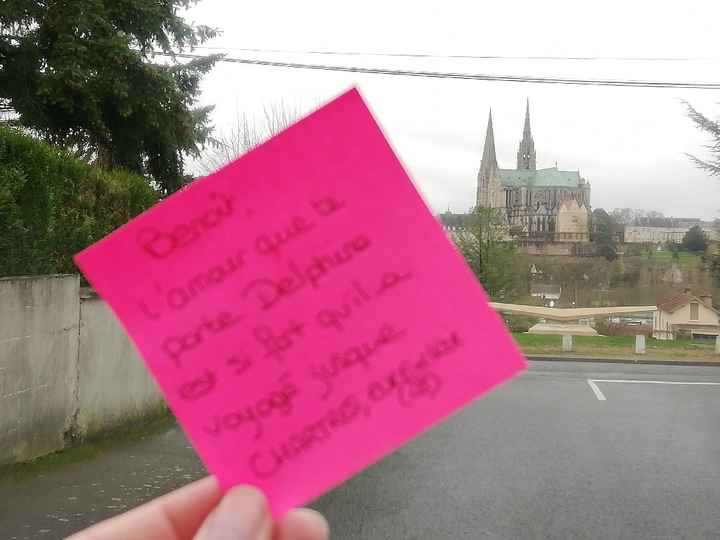 Benoit,
L'amour que te
porte Delphine
est si fort qu'il a
voyagé jusque
CHARTRES, EURE-et-Loir
(28)